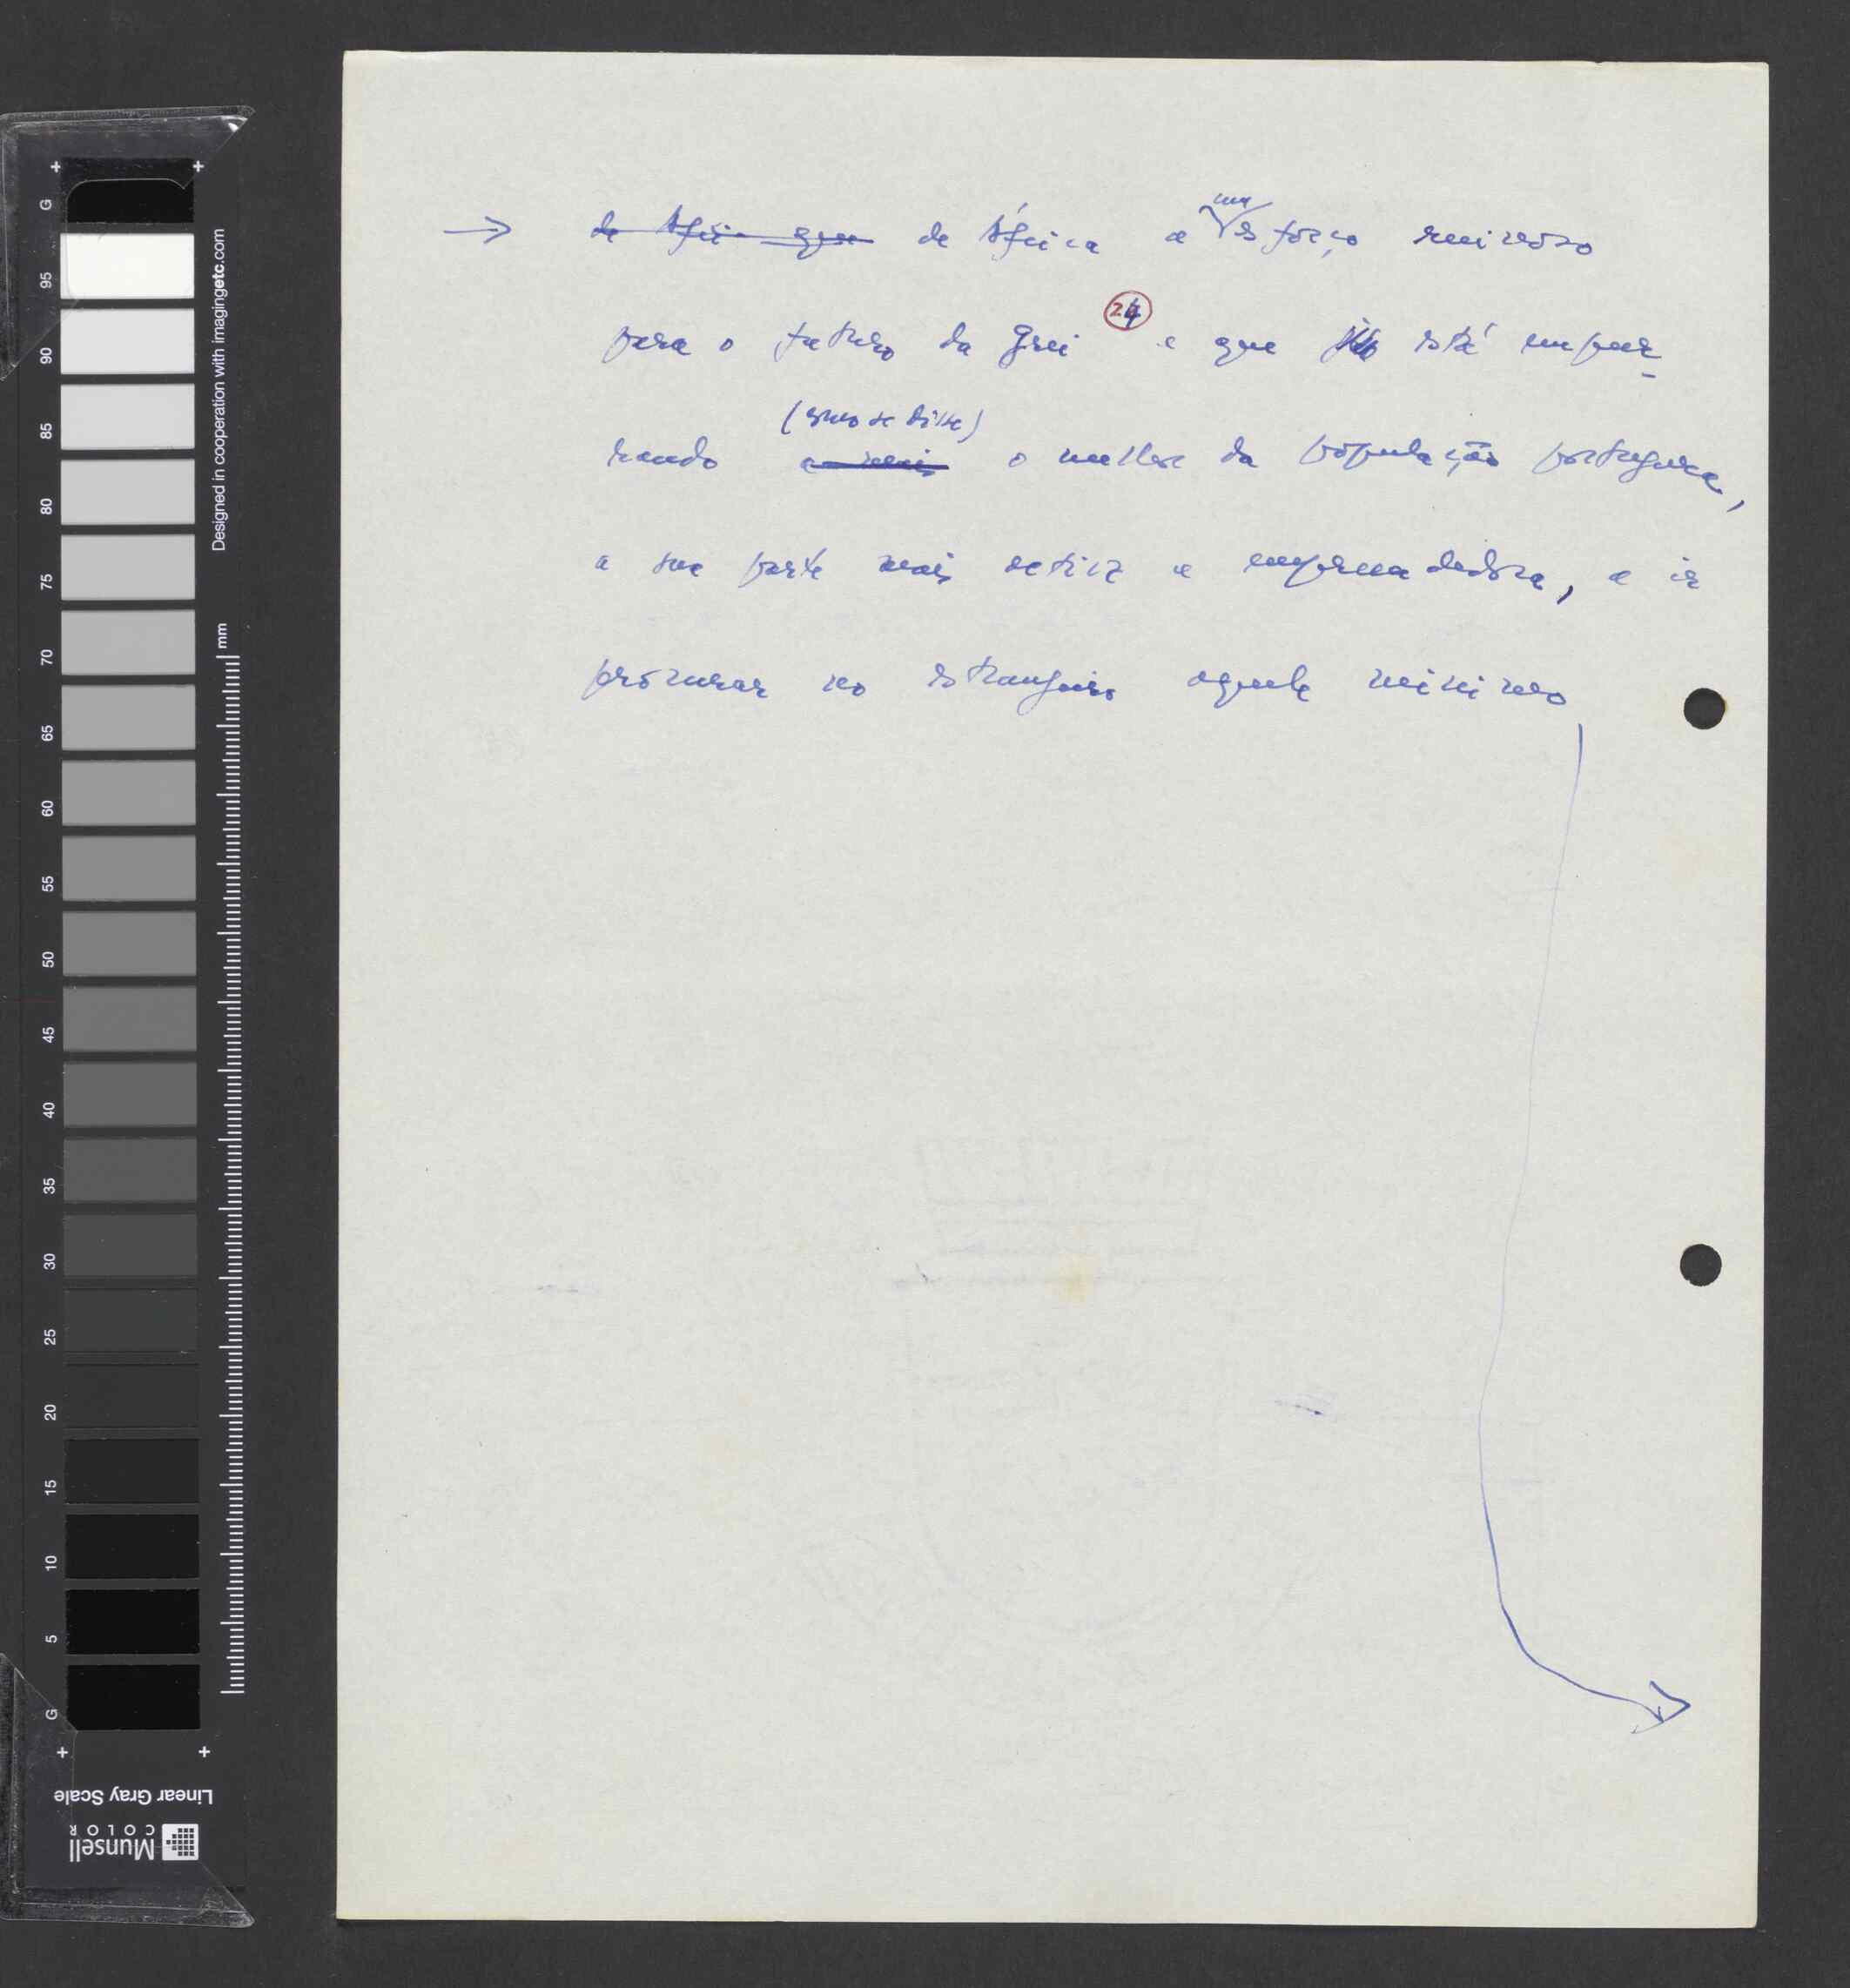 G 95 90 85 80 75 70 65 60 55 50 45 40 35 30 25 20 15 10 5 G
Designed in cooperation with imagingetc.com
mm
Linear Gray Scale
Munsell
COLOR
→ de África que de África a um esforço ruinoso
24
para o futuro da Grei e que está empur-
(como se disse)
rando a mais o melhor da população portuguesa,
a sua parte mais activa e empreendedora, a ir
procurar no estrangeiro aquele mínimo